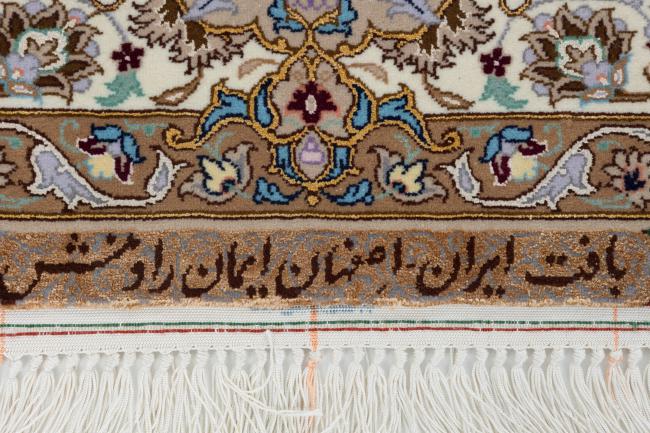 بافت ایران - اصفهان ایمان راوش